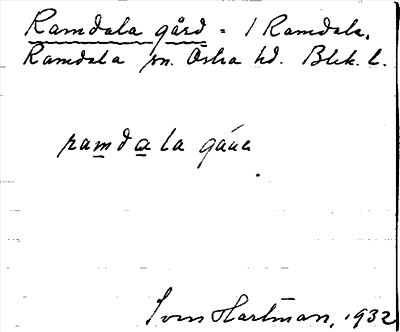 Ramdala gård = 1 Ramdala,
Ramdala sn. Östra hd. Blek. l.
ramdala
Sven Hartman, 1932